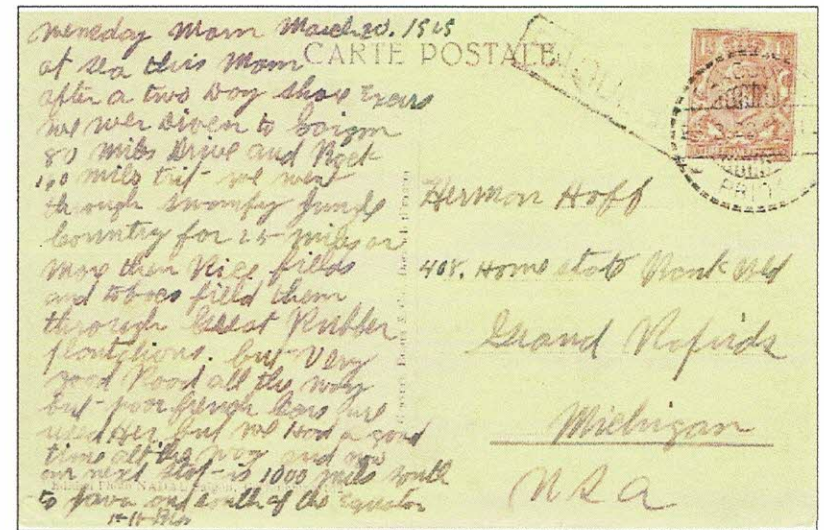 Weneday Morn March 20. 1925
CARTE POSTALE
at sea this Morn
after a two Day shore
we wer Driven to Saigon
80 miles Drive and
160 miles trip we went
through swompy jungle
Country for 25 miles or
More then Rice fields
and tobaco field them
through Great Rubber
plantations. but very
good Road all the way
but poor french Cars are
used Her but we Had a good
time all the way and now
our next stop is 1000 miles south
to Java and south of the Equator
Herman Hoff
408. Home state Bank Bld
Grand Rapids
Michigan
USA